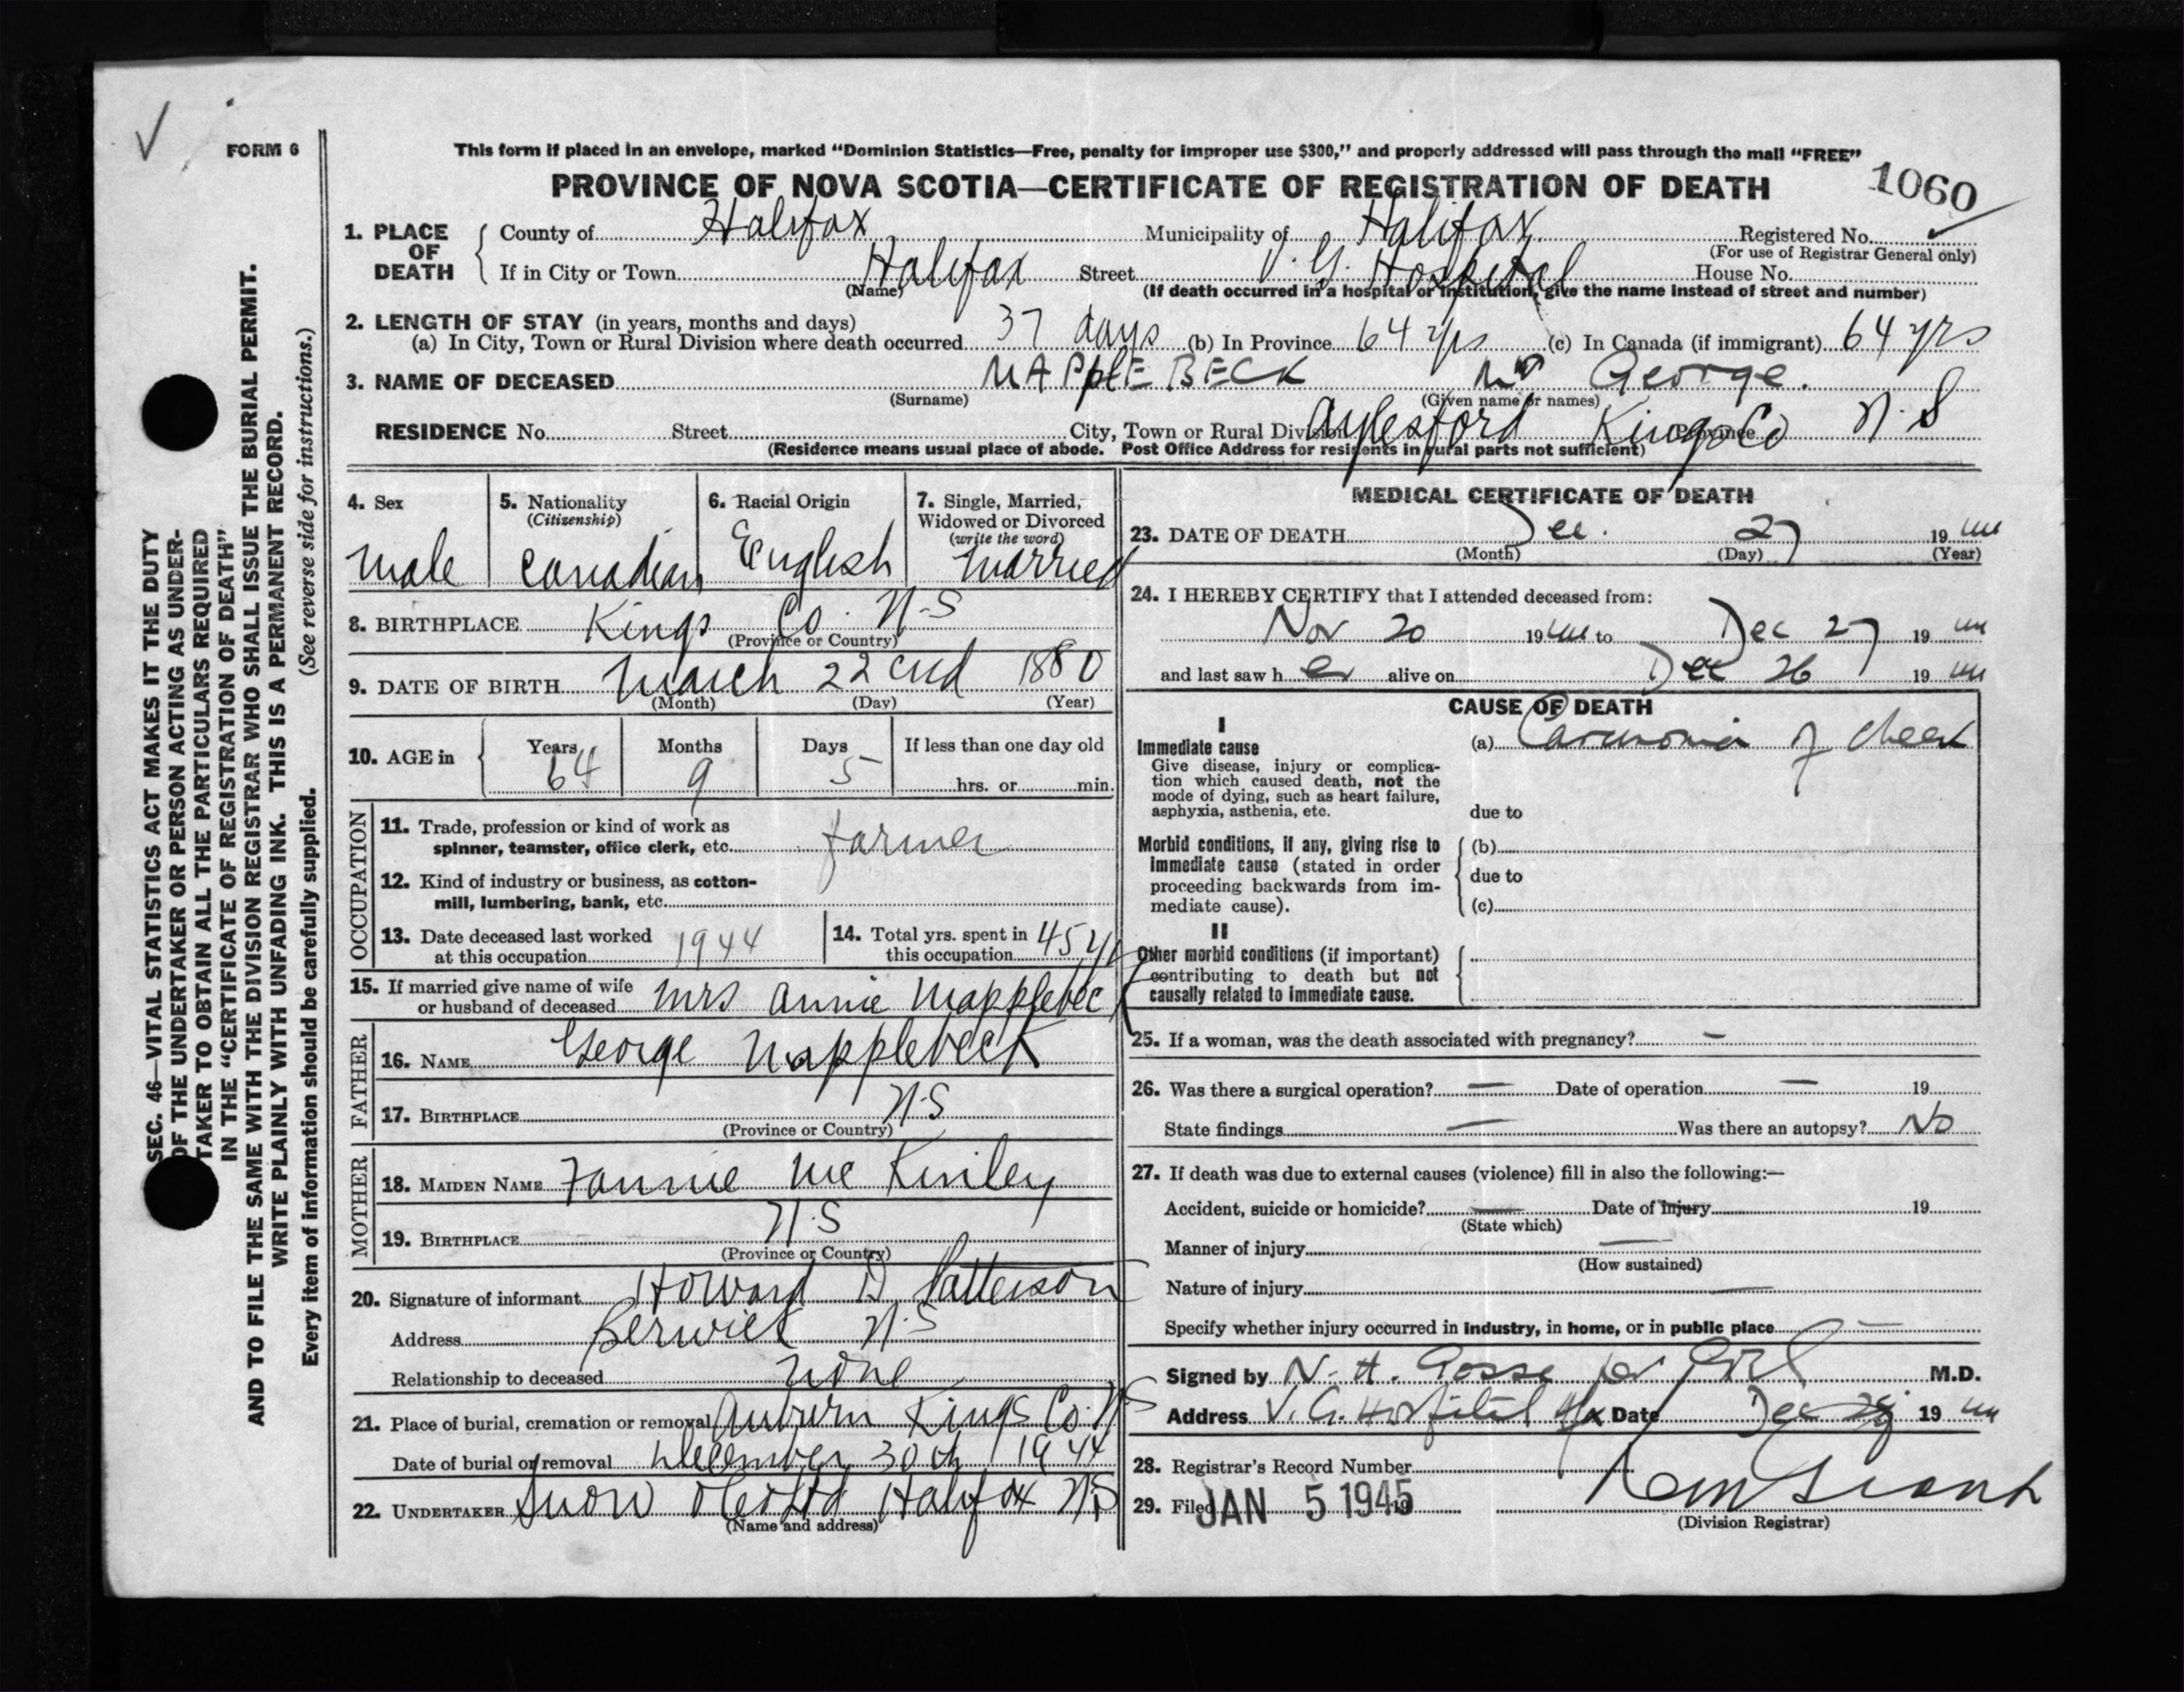 FORM 6
This form if placed in an envelope, marked "Dominion Statistics—Free, penalty for improper use $300," and properly addressed will pass through the mail "FREE"
PROVINCE OF NOVA SCOTIA—CERTIFICATE OF REGISTRATION OF DEATH
1060
1. PLACE OF DEATH County of Halifax Municipality of Halifax Registered No.
(For use of Registrar General only)
If in City or Town Halifax Street V. G. Hospital House No.
(Name) (If death occurred in a hospital or institution, give the name instead of street and number)
2. LENGTH OF STAY (in years, months and days)
(a) In City, Town or Rural Division where death occurred 37 days (b) In Province 64 yrs (c) In Canada (if immigrant) 64 yrs
3. NAME OF DECEASED MAPPlEBECK Mr George.
(Surname) (Given name or names)
RESIDENCE No. Street City, Town or Rural Division Aylesford Kings Co Province N.S
(Residence means usual place of abode. Post Office Address for residents in rural parts not sufficient)
4. Sex 5. Nationality 6. Racial Origin 7. Single, Married,
(Citizenship) Widowed or Divorced
(write the word)
male Canadian English married
8. BIRTHPLACE Kings Co. N-S
(Province or Country)
9. DATE OF BIRTH March 22nd 1880
(Month) (Day) (Year)
10. AGE in Years Months Days If less than one day old
64 9 5 hrs. or min.
OCCUPATION
11. Trade, profession or kind of work as
spinner, teamster, office clerk, etc. farmer
12. Kind of industry or business, as cotton-
mill, lumbering, bank, etc.
13. Date deceased last worked at this occupation 1944 14. Total yrs. spent in this occupation 45 yr
15. If married give name of wife
or husband of deceased Mrs Annie Mapplebeck
FATHER
16. NAME George Mapplebeck
17. BIRTHPLACE N.S
(Province or Country)
MOTHER
18. MAIDEN NAME Fannie Mc Kinley
19. BIRTHPLACE N.S
(Province or Country)
20. Signature of informant Howard D Patterson
Address Berwick N.S
Relationship to deceased none
21. Place of burial, cremation or removal Auburn Kings Co. N.S
Date of burial or removal December 30th 1944
22. UNDERTAKER Snow & Co Ltd Halifax N.S
(Name and address)
MEDICAL CERTIFICATE OF DEATH
23. DATE OF DEATH Dec. 27 19 44
(Month) (Day) (Year)
24. I HEREBY CERTIFY that I attended deceased from:
Nov 20 19 44 to Dec 27 19 44
and last saw h er alive on Dec 26 19 44
CAUSE OF DEATH
I
Immediate cause (a) Carcinoma of cheek
Give disease, injury or complica-
tion which caused death, not the
mode of dying, such as heart failure,
asphyxia, asthenia, etc. due to
Morbid conditions, if any, giving rise to (b)
immediate cause (stated in order
proceeding backwards from im- due to
mediate cause). (c)
II
Other morbid conditions (if important)
contributing to death but not
causally related to immediate cause.
25. If a woman, was the death associated with pregnancy? —
26. Was there a surgical operation? — Date of operation — 19
State findings — Was there an autopsy? No
27. If death was due to external causes (violence) fill in also the following:—
Accident, suicide or homicide? — Date of injury 19
(State which)
Manner of injury —
(How sustained)
Nature of injury —
Specify whether injury occurred in industry, in home, or in public place —
Signed by N. H. Gosse per M.D.
Address V. G. Hospital Hfx Date Dec 19 44
28. Registrar's Record Number
29. Filed JAN 5 1945 19
(Division Registrar)
SEC. 46—VITAL STATISTICS ACT MAKES IT THE DUTY
OF THE UNDERTAKER OR PERSON ACTING AS UNDER-
TAKER TO OBTAIN ALL THE PARTICULARS REQUIRED
IN THE "CERTIFICATE OF REGISTRATION OF DEATH"
AND TO FILE THE SAME WITH THE DIVISION REGISTRAR WHO SHALL ISSUE THE BURIAL PERMIT.
WRITE PLAINLY WITH UNFADING INK. THIS IS A PERMANENT RECORD.
Every item of information should be carefully supplied. (See reverse side for instructions.)